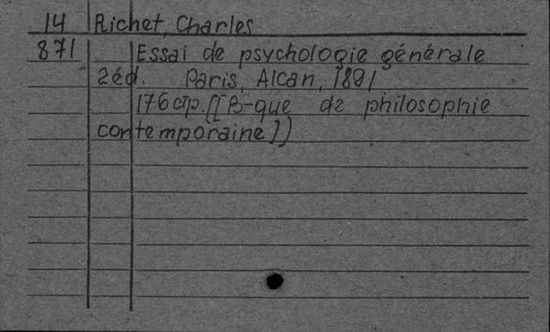 14 Richet, Charles
871 Essai de psychologie générale
2éd. Paris, Alcan, 1891
176 стр. [[B-que de philosophie
contemporaine])